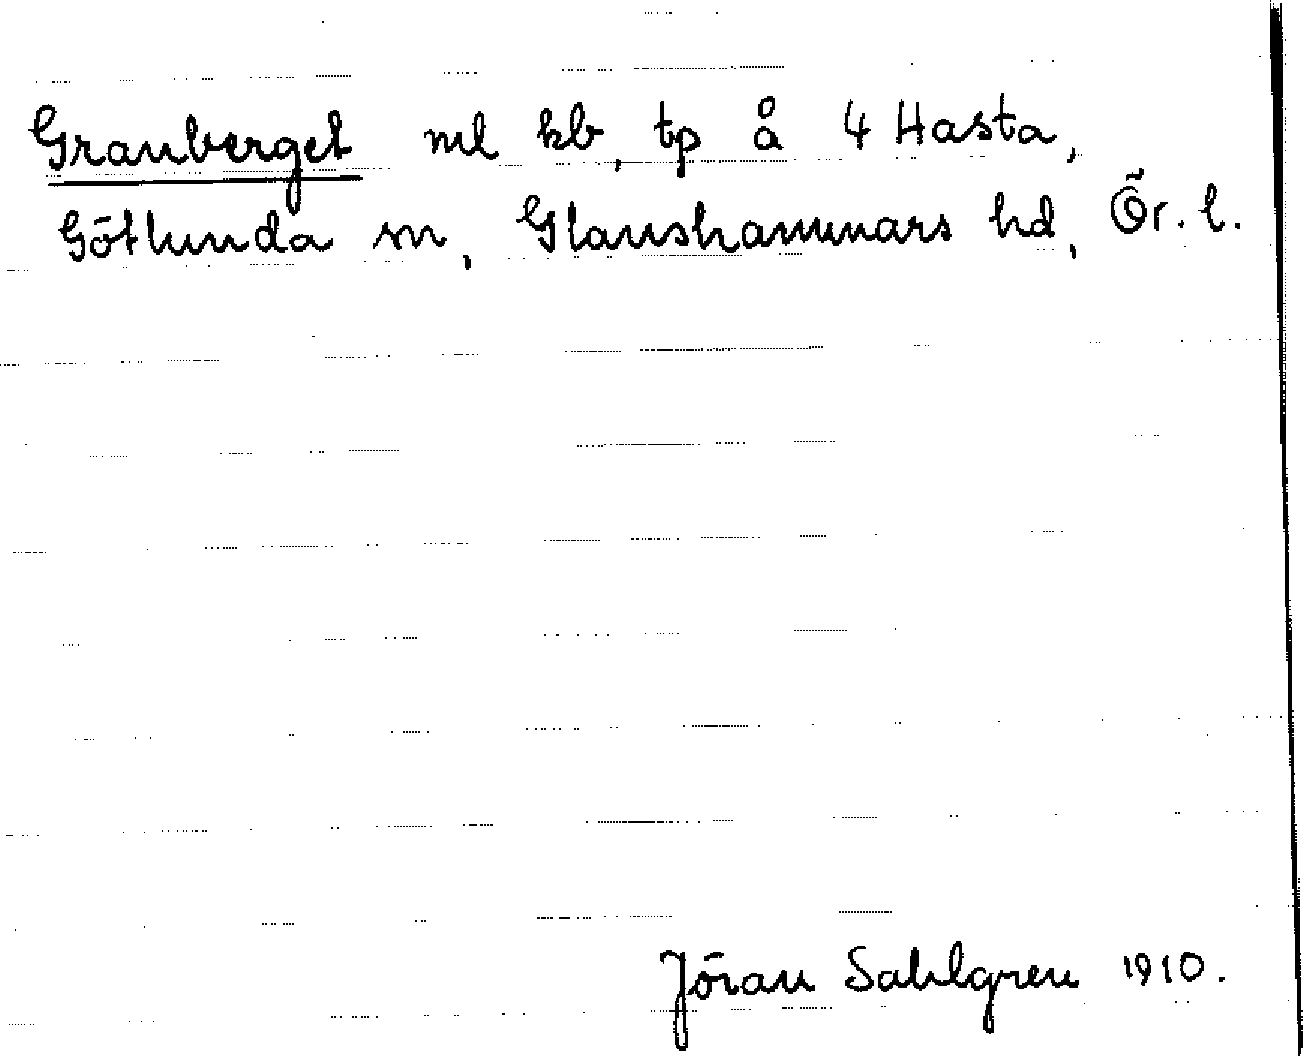 Granberget ml kb, tp å 4 Hasta,
Götlunda sn, Glanshammars hd, Ör. l.
Jöran Sahlgren 1910.